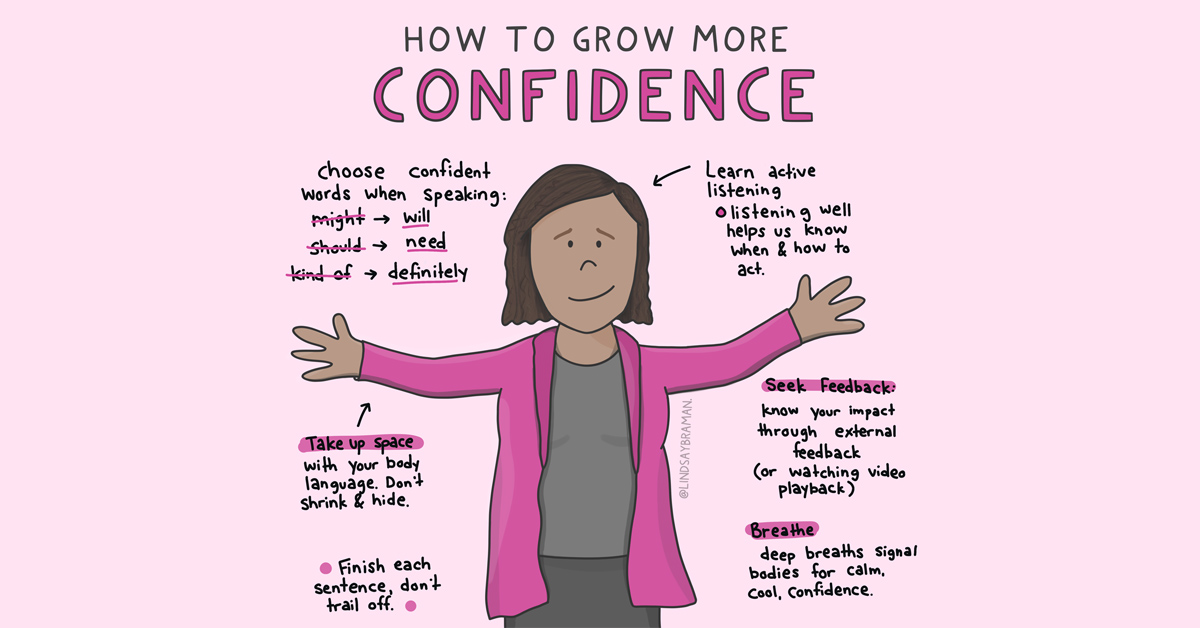 HOW TO GROW MORE
CONFIDENCE
choose confident
words when speaking:
might → will
should → need
kind of → definitely
Learn active
listening
listening well
helps us know
when & how to
act.
Take up space
with your body
language. Don't
shrink & hide.
Finish each
sentence, don't
trail off.
@LINDSAYBRAMAN.
Seek Feedback:
know your impact
through external
feedback
(or watching video
playback)
Breathe
deep breaths signal
bodies for calm,
cool, confidence.